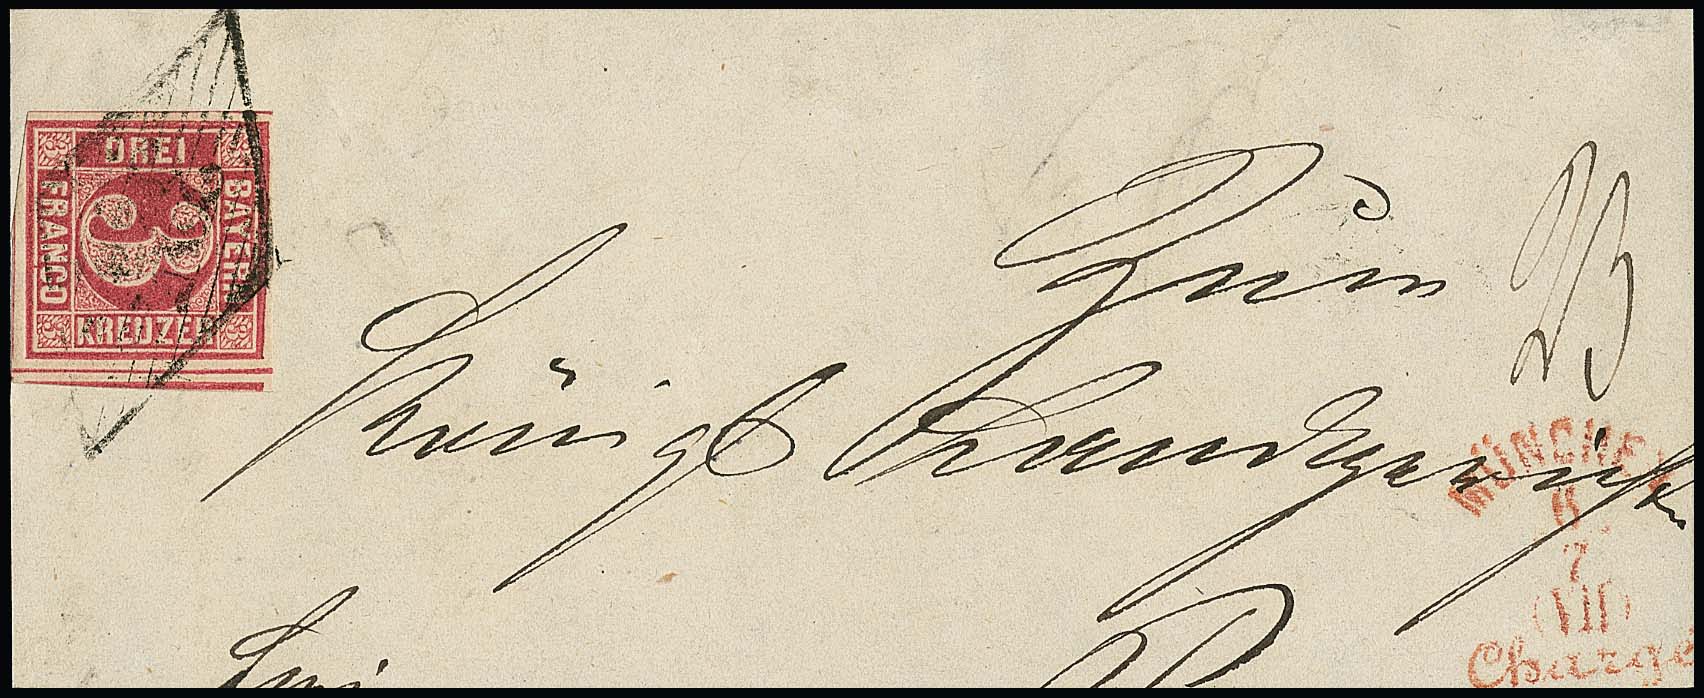 DREI
BAYERN
FRANCO
3
KREUZER
Zum
Königl Landgerichte
MÜNCHEN
6
7
(VII)
Chargé